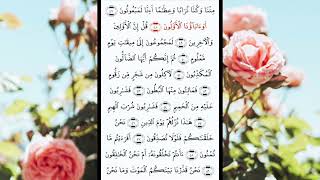 مِتْنَا وَكُنَّا تُرَابًا وَعِظَـٰمًا أَءِنَّا لَمَبْعُوثُونَ ٤٧
أَوَءَابَآؤُنَا ٱلْأَوَّلُونَ ٤٨ قُلْ إِنَّ ٱلْأَوَّلِينَ
وَٱلْـَٔاخِرِينَ ٤٩ لَمَجْمُوعُونَ إِلَىٰ مِيقَـٰتِ يَوْمٍ
مَّعْلُومٍ ٥٠ ثُمَّ إِنَّكُمْ أَيُّهَا ٱلضَّآلُّونَ
ٱلْمُكَذِّبُونَ ٥١ لَـَٔاكِلُونَ مِن شَجَرٍ مِّن زَقُّومٍ
٥٢ فَمَالِـُٔونَ مِنْهَا ٱلْبُطُونَ ٥٣ فَشَـٰرِبُونَ
عَلَيْهِ مِنَ ٱلْحَمِيمِ ٥٤ فَشَـٰرِبُونَ شُرْبَ ٱلْهِيمِ
٥٥ هَـٰذَا نُزُلُهُمْ يَوْمَ ٱلدِّينِ ٥٦ نَحْنُ
خَلَقْنَـٰكُمْ فَلَوْلَا تُصَدِّقُونَ ٥٧ أَفَرَءَيْتُم مَّا
تُمْنُونَ ٥٨ ءَأَنتُمْ تَخْلُقُونَهُۥٓ أَمْ نَحْنُ ٱلْخَـٰلِقُونَ
٥٩ نَحْنُ قَدَّرْنَا بَيْنَكُمُ ٱلْمَوْتَ وَمَا نَحْنُ